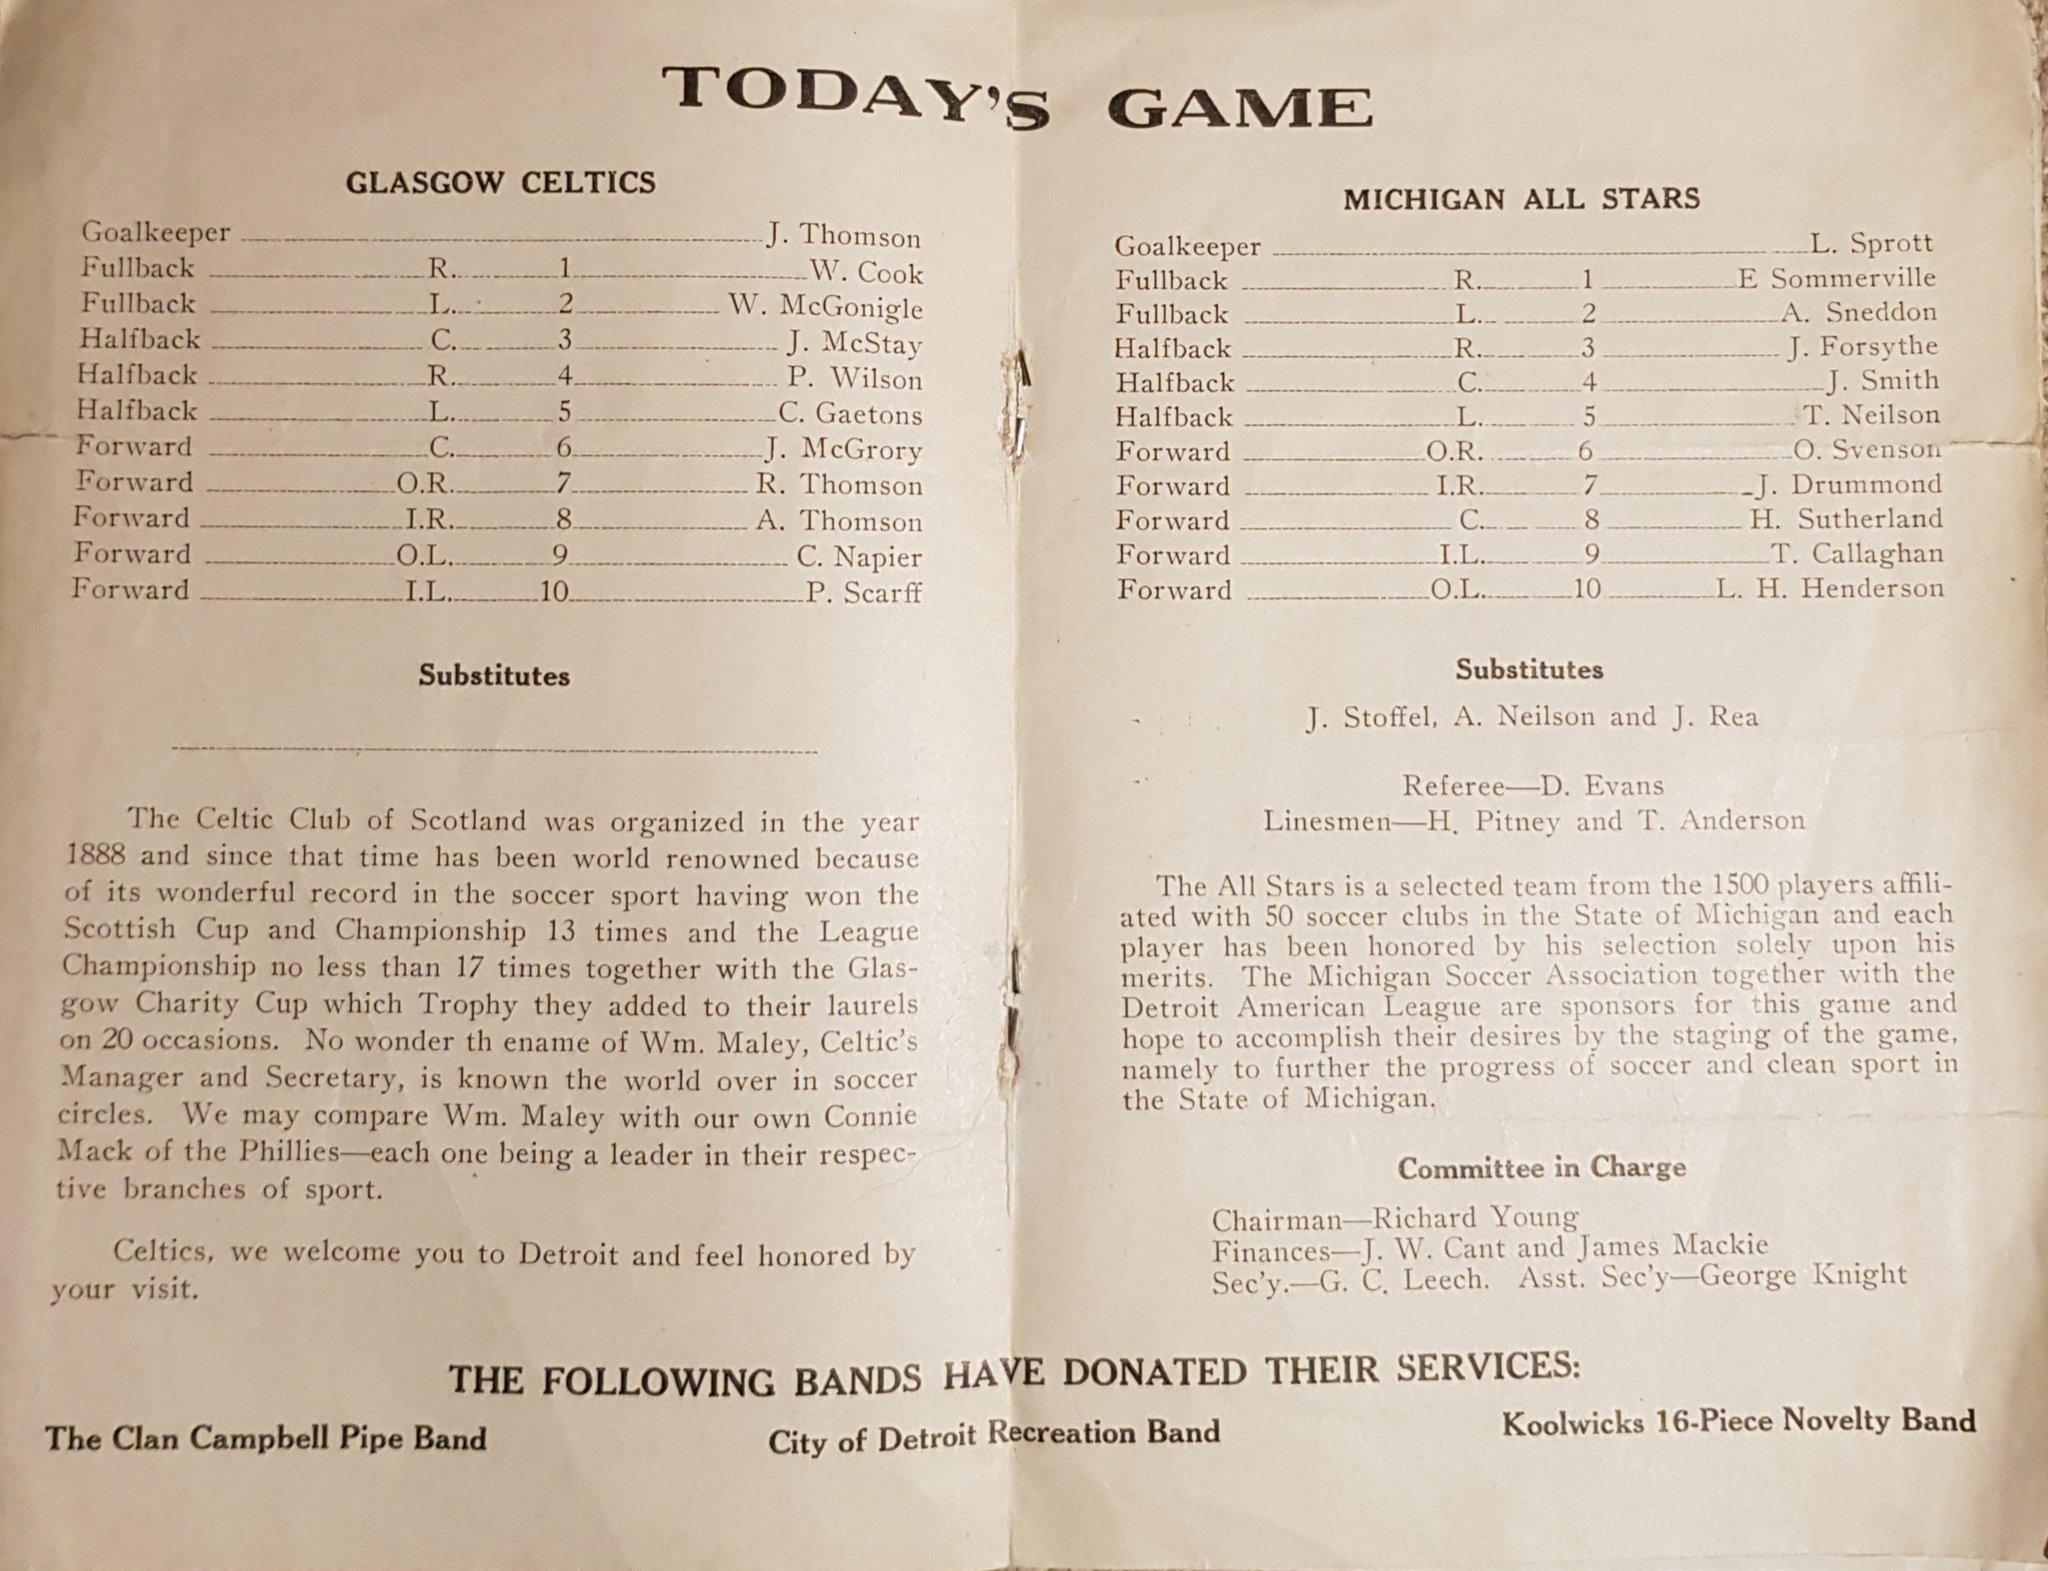 TODAY'S GAME
GLASGOW CELTICS
Goalkeeper J. Thomson
Fullback R. 1 W. Cook
Fullback L. 2 W. McGonigle
Halfback C. 3 J. McStay
Halfback R. 4 P. Wilson
Halfback L. 5 C. Gaetons
Forward C. 6 J. McGrory
Forward O.R. 7 R. Thomson
Forward I.R. 8 A. Thomson
Forward O.L. 9 C. Napier
Forward I.L. 10 P. Scarff
Substitutes
The Celtic Club of Scotland was organized in the year
1888 and since that time has been world renowned because
of its wonderful record in the soccer sport having won the
Scottish Cup and Championship 13 times and the League
Championship no less than 17 times together with the Glas-
gow Charity Cup which Trophy they added to their laurels
on 20 occasions. No wonder th ename of Wm. Maley, Celtic's
Manager and Secretary, is known the world over in soccer
circles. We may compare Wm. Maley with our own Connie
Mack of the Phillies—each one being a leader in their respec-
tive branches of sport.
Celtics, we welcome you to Detroit and feel honored by
your visit.
MICHIGAN ALL STARS
Goalkeeper L. Sprott
Fullback R. 1 E Sommerville
Fullback L. 2 A. Sneddon
Halfback R. 3 J. Forsythe
Halfback C. 4 J. Smith
Halfback L. 5 T. Neilson
Forward O.R. 6 O. Svenson
Forward I.R. 7 J. Drummond
Forward C. 8 H. Sutherland
Forward I.L. 9 T. Callaghan
Forward O.L. 10 L. H. Henderson
Substitutes
J. Stoffel, A. Neilson and J. Rea
Referee—D. Evans
Linesmen—H. Pitney and T. Anderson
The All Stars is a selected team from the 1500 players affili-
ated with 50 soccer clubs in the State of Michigan and each
player has been honored by his selection solely upon his
merits. The Michigan Soccer Association together with the
Detroit American League are sponsors for this game and
hope to accomplish their desires by the staging of the game,
namely to further the progress of soccer and clean sport in
the State of Michigan.
Committee in Charge
Chairman—Richard Young
Finances—J. W. Cant and James Mackie
Sec'y.—G. C. Leech. Asst. Sec'y—George Knight
THE FOLLOWING BANDS HAVE DONATED THEIR SERVICES:
The Clan Campbell Pipe Band
City of Detroit Recreation Band
Koolwicks 16-Piece Novelty Band